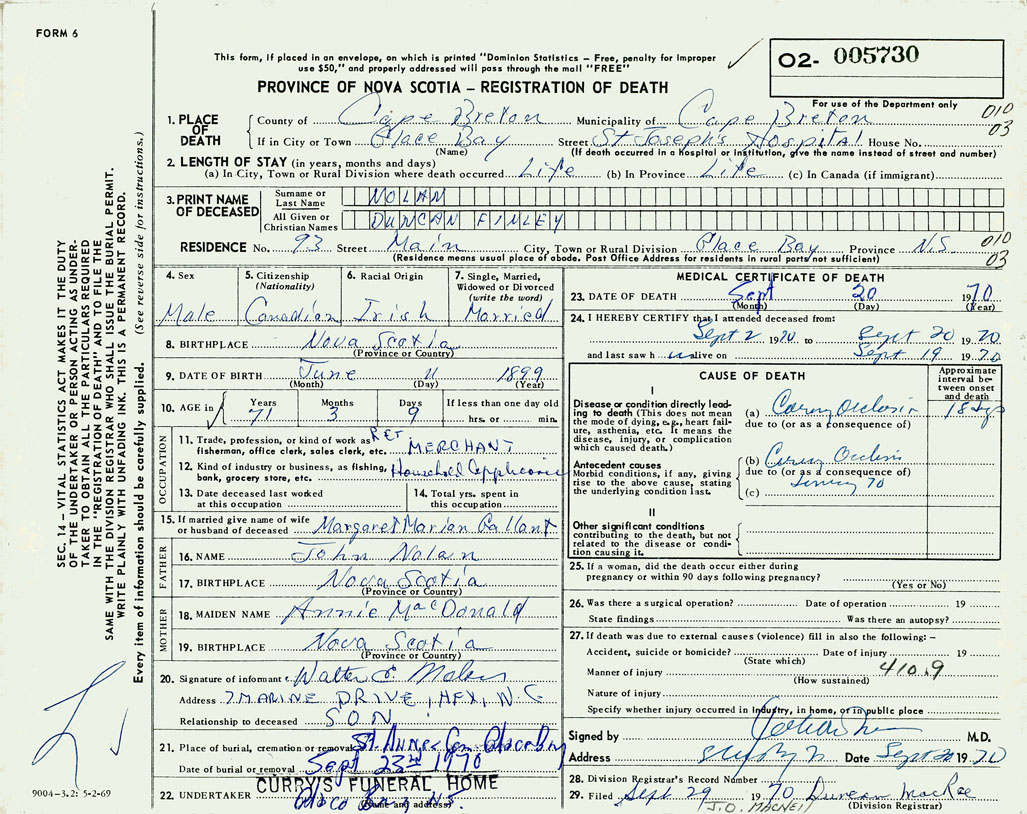 FORM 6
This form, if placed in an envelope, on which is printed "Dominion Statistics – Free, penalty for improper
use $50," and properly addressed will pass through the mail "FREE"
O2- 005730
PROVINCE OF NOVA SCOTIA – REGISTRATION OF DEATH
For use of the Department only
010
03
1. PLACE OF DEATH
County of Cape Breton Municipality of Cape Breton
If in City or Town Glace Bay Street St Joseph's Hospital House No.
(Name) (If death occurred in a Hospital or Institution, give the name instead of street and number)
2. LENGTH OF STAY (in years, months and days)
(a) In City, Town or Rural Division where death occurred Life (b) In Province Life (c) In Canada (if immigrant)
3. PRINT NAME OF DECEASED
Surname or Last Name NOLAN
All Given or Christian Names DUNCAN FINLEY
RESIDENCE No. 93 Street Main City, Town or Rural Division Glace Bay Province N.S
010
03
(Residence means usual place of abode. Post Office Address for residents in rural parts not sufficient)
4. Sex
Male
5. Citizenship
(Nationality)
Canadian
6. Racial Origin
Irish
7. Single, Married,
Widowed or Divorced
(write the word)
Married
8. BIRTHPLACE Nova Scotia
(Province or Country)
9. DATE OF BIRTH June 11 1899
(Month) (Day) (Year)
10. AGE in
Years Months Days If less than one day old
71 3 9 hrs. or min.
OCCUPATION
11. Trade, profession, or kind of work as RET MERCHANT
fisherman, office clerk, sales clerk, etc.
12. Kind of industry or business, as fishing, Household Appliances
bank, grocery store, etc.
13. Date deceased last worked
at this occupation
14. Total yrs. spent in
this occupation
15. If married give name of wife
or husband of deceased Margaret Marian Gallant
FATHER
16. NAME John Nolan
17. BIRTHPLACE Nova Scotia
(Province or Country)
MOTHER
18. MAIDEN NAME Annie MacDonald
19. BIRTHPLACE Nova Scotia
(Province or Country)
20. Signature of informant Walter
Address 7 MARINE DRIVE, HFX, N.
Relationship to deceased SON
21. Place of burial, cremation or removal St Anne Cem Glace Bay
Date of burial or removal Sept 23rd 1970
22. UNDERTAKER CURRY'S FUNERAL HOME
Glace Bay N.S.
(Name and address)
MEDICAL CERTIFICATE OF DEATH
23. DATE OF DEATH Sept 20 1970
(Month) (Day) (Year)
24. I HEREBY CERTIFY that I attended deceased from:
Sept 2 1970 to Sept 20 1970
and last saw h im alive on Sept 19 1970
CAUSE OF DEATH
Approximate
interval be-
tween onset
and death
I
Disease or condition directly lead-
ing to death (This does not mean
the mode of dying, e.g., heart fail-
ure, asthenia, etc. It means the
disease, injury, or complication
which caused death.)
(a) Occlusion 18 dys
due to (or as a consequence of)
Antecedent causes
Morbid conditions, if any, giving
rise to the above cause, stating
the underlying condition last.
(b) Occlusion
due to (or as a consequence of)
70
(c)
II
Other significant conditions
contributing to the death, but not
related to the disease or condi-
tion causing it.
25. If a woman, did the death occur either during
pregnancy or within 90 days following pregnancy?
(Yes or No)
26. Was there a surgical operation? Date of operation 19
State findings Was there an autopsy?
27. If death was due to external causes (violence) fill in also the following: –
Accident, suicide or homicide? Date of injury 19
(State which)
Manner of injury 410.9
(How sustained)
Nature of injury
Specify whether injury occurred in industry, in home, or in public place
Signed by M.D.
Address Date Sept 20 1970
28. Division Registrar's Record Number
29. Filed Sept. 29 1970 Duncan MacRae
J.O. MACNEIL (Division Registrar)
SEC. 14 – VITAL STATISTICS ACT MAKES IT THE DUTY
OF THE UNDERTAKER OR PERSON ACTING AS UNDER-
TAKER TO OBTAIN ALL THE PARTICULARS REQUIRED
IN THE "REGISTRATION OF DEATH" AND TO FILE THE
SAME WITH THE DIVISION REGISTRAR WHO SHALL ISSUE THE BURIAL PERMIT.
WRITE PLAINLY WITH UNFADING INK. THIS IS A PERMANENT RECORD.
Every item of information should be carefully supplied. (See reverse side for instructions.)
9004-3.2: 5-2-69